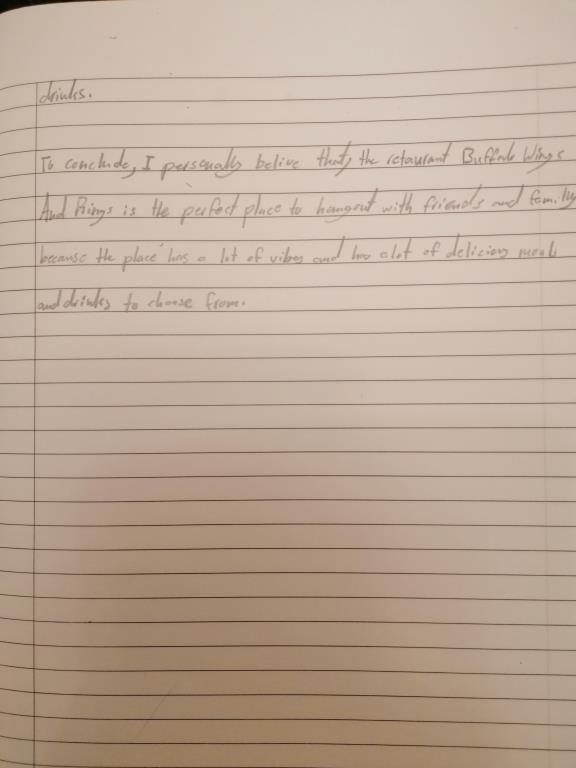 drinks.
To conclude, I personally belive that, the retaurant Buffalo Wings
And Rings is the perfect place to hangout with friends and family
because the place has a lot of vibes and has alot of delicious meals
and drinks to choose from.